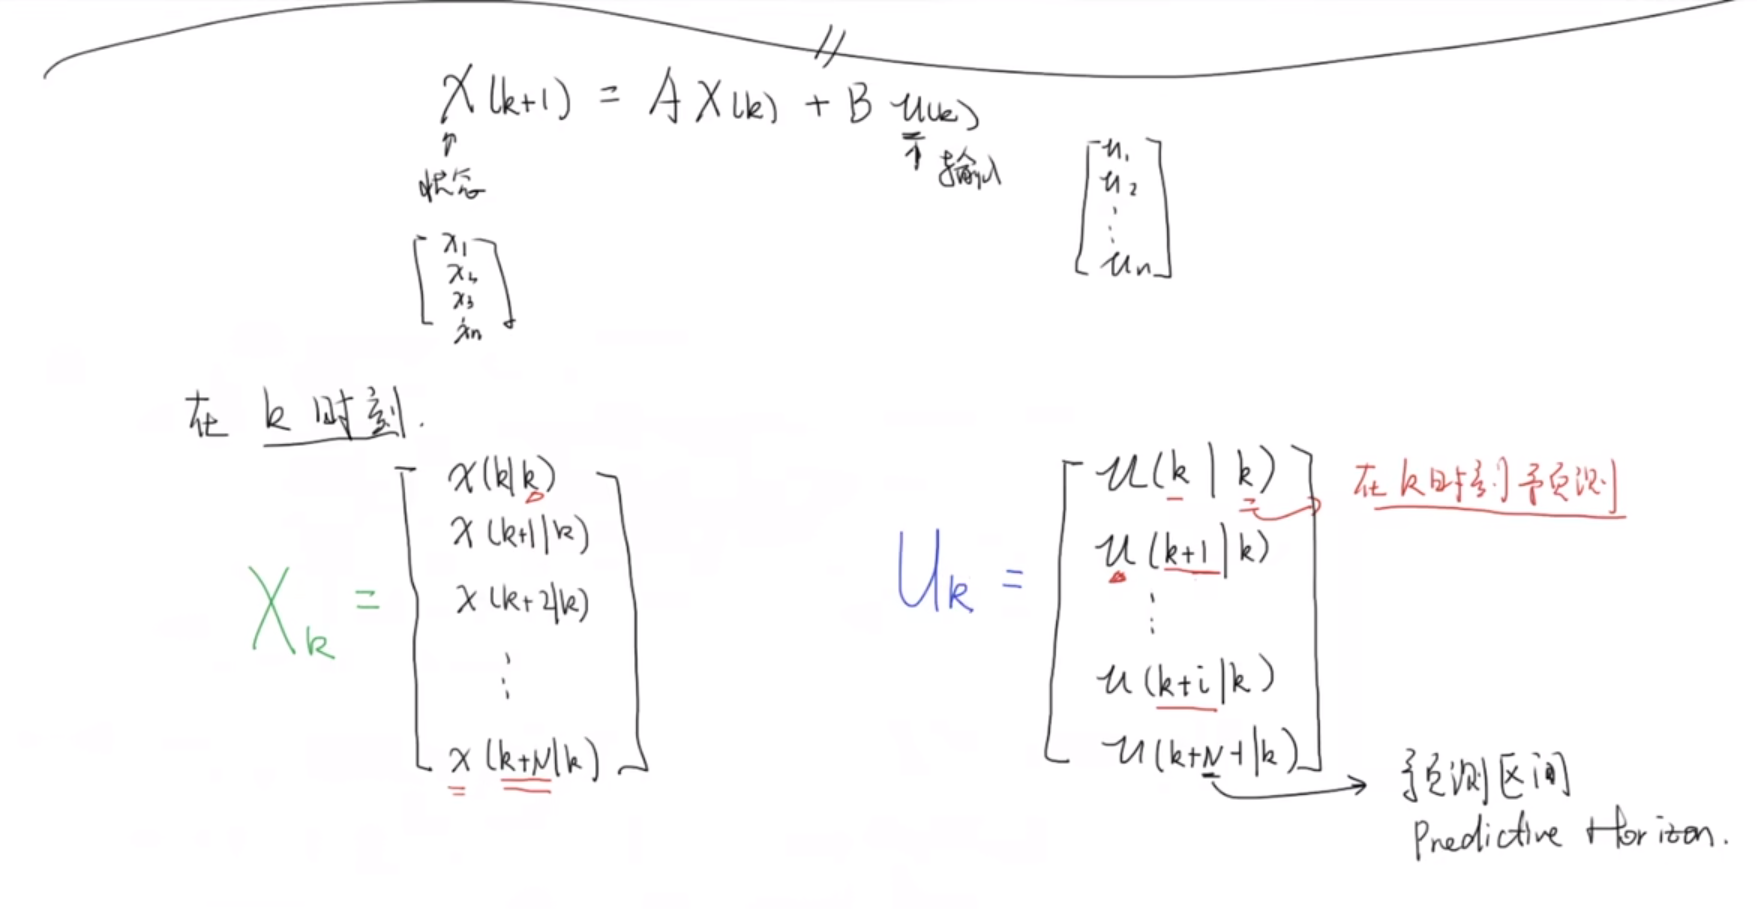 X(k+1) = A X(k) + B u(k)
↑
状态
↑ 输入
[x1
x2
x3
xn]
[u1
u2
⋮
un]
在 k 时刻.
Xk =
[x(k|k)
x(k+1|k)
x(k+2|k)
⋮
x(k+N|k)]
Uk =
[u(k|k)
u(k+1|k)
⋮
u(k+i|k)
u(k+N-1|k)]
在k时刻预测
预测区间
Predictive Horizon.